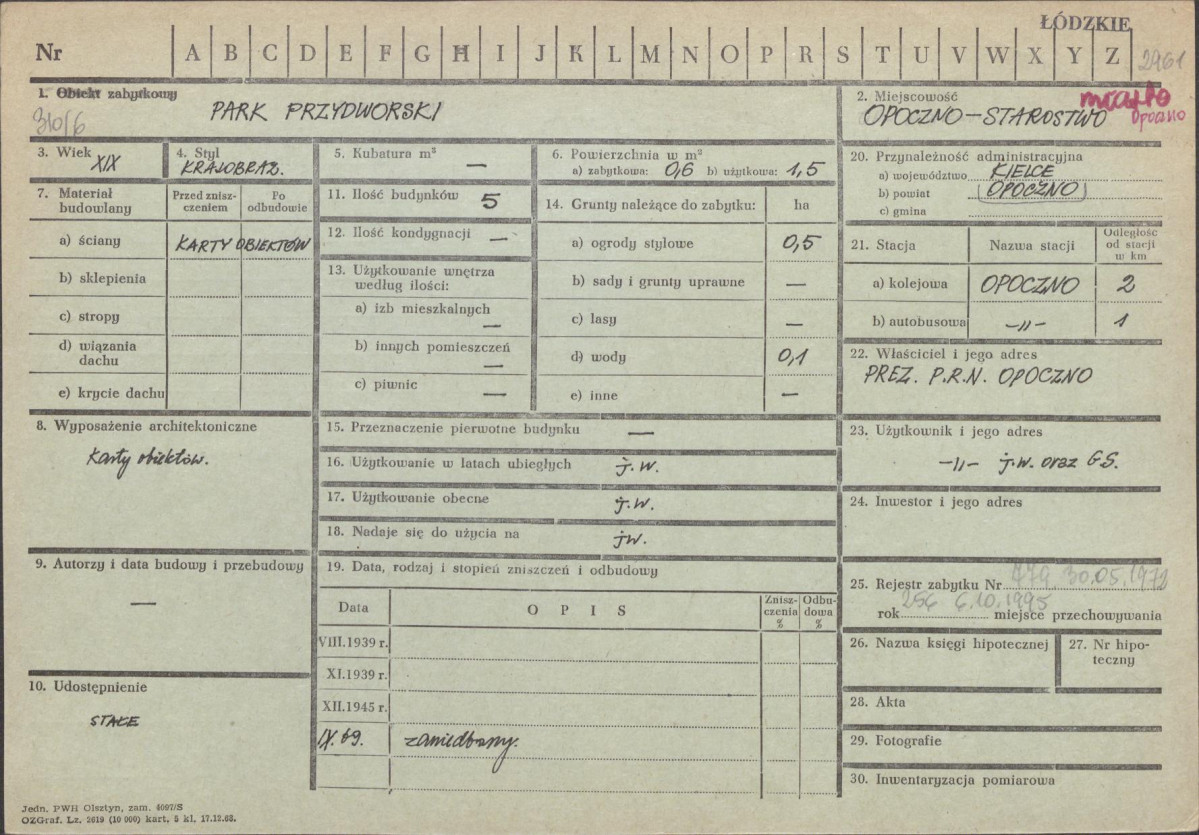 ŁÓDZKIE
Nr A B C D E F G H I J K L M N O P R S T U V W X Y Z 2961
1. Obiekt zabytkowy
PARK PRZYDWORSKI
310/6
2. Miejscowość
OPOCZNO - STAROSTWO
miasto
Opoczno
3. Wiek
XIX
4. Styl
KRAJOBRAZ.
5. Kubatura m³ —
6. Powierzchnia w m²
a) zabytkowa: 0,6 b) użytkowa: 1,5
7. Materiał budowlany
Przed zniszczeniem
Po odbudowie
a) ściany KARTY OBIEKTÓW
b) sklepienia
c) stropy
d) wiązania dachu
e) krycie dachu
8. Wyposażenie architektoniczne
Karty obiektów.
9. Autorzy i data budowy i przebudowy
—
10. Udostępnienie
STAŁE
11. Ilość budynków 5
12. Ilość kondygnacji —
13. Użytkowanie wnętrza
według ilości:
a) izb mieszkalnych —
b) innych pomieszczeń —
c) piwnic —
14. Grunty należące do zabytku: ha
a) ogrody stylowe 0,5
b) sady i grunty uprawne —
c) lasy —
d) wody 0,1
e) inne —
15. Przeznaczenie pierwotne budynku —
16. Użytkowanie w latach ubiegłych j.w.
17. Użytkowanie obecne j.w.
18. Nadaje się do użycia na jw.
19. Data, rodzaj i stopień zniszczeń i odbudowy
Data OPIS Zniszczenia % Odbudowa %
VIII.1939 r.
XI.1939 r.
XII.1945 r.
IX.69. zaniedbany.
20. Przynależność administracyjna
a) województwo KIELCE
b) powiat OPOCZNO
c) gmina
21. Stacja Nazwa stacji Odległość od stacji w km
a) kolejowa OPOCZNO 2
b) autobusowa -"- 1
22. Właściciel i jego adres
PREZ. P.R.N. OPOCZNO
23. Użytkownik i jego adres
-"- j.w. oraz G.S.
24. Inwestor i jego adres
25. Rejestr zabytku Nr 479 30.05.1972
256 6.10.1995
rok miejsce przechowywania
26. Nazwa księgi hipotecznej
27. Nr hipoteczny
28. Akta
29. Fotografie
30. Inwentaryzacja pomiarowa
Jedn. PWH Olsztyn, zam. 4097/S
OZGraf. Lz. 2619 (10 000) kart. 5 kl. 17.12.68.